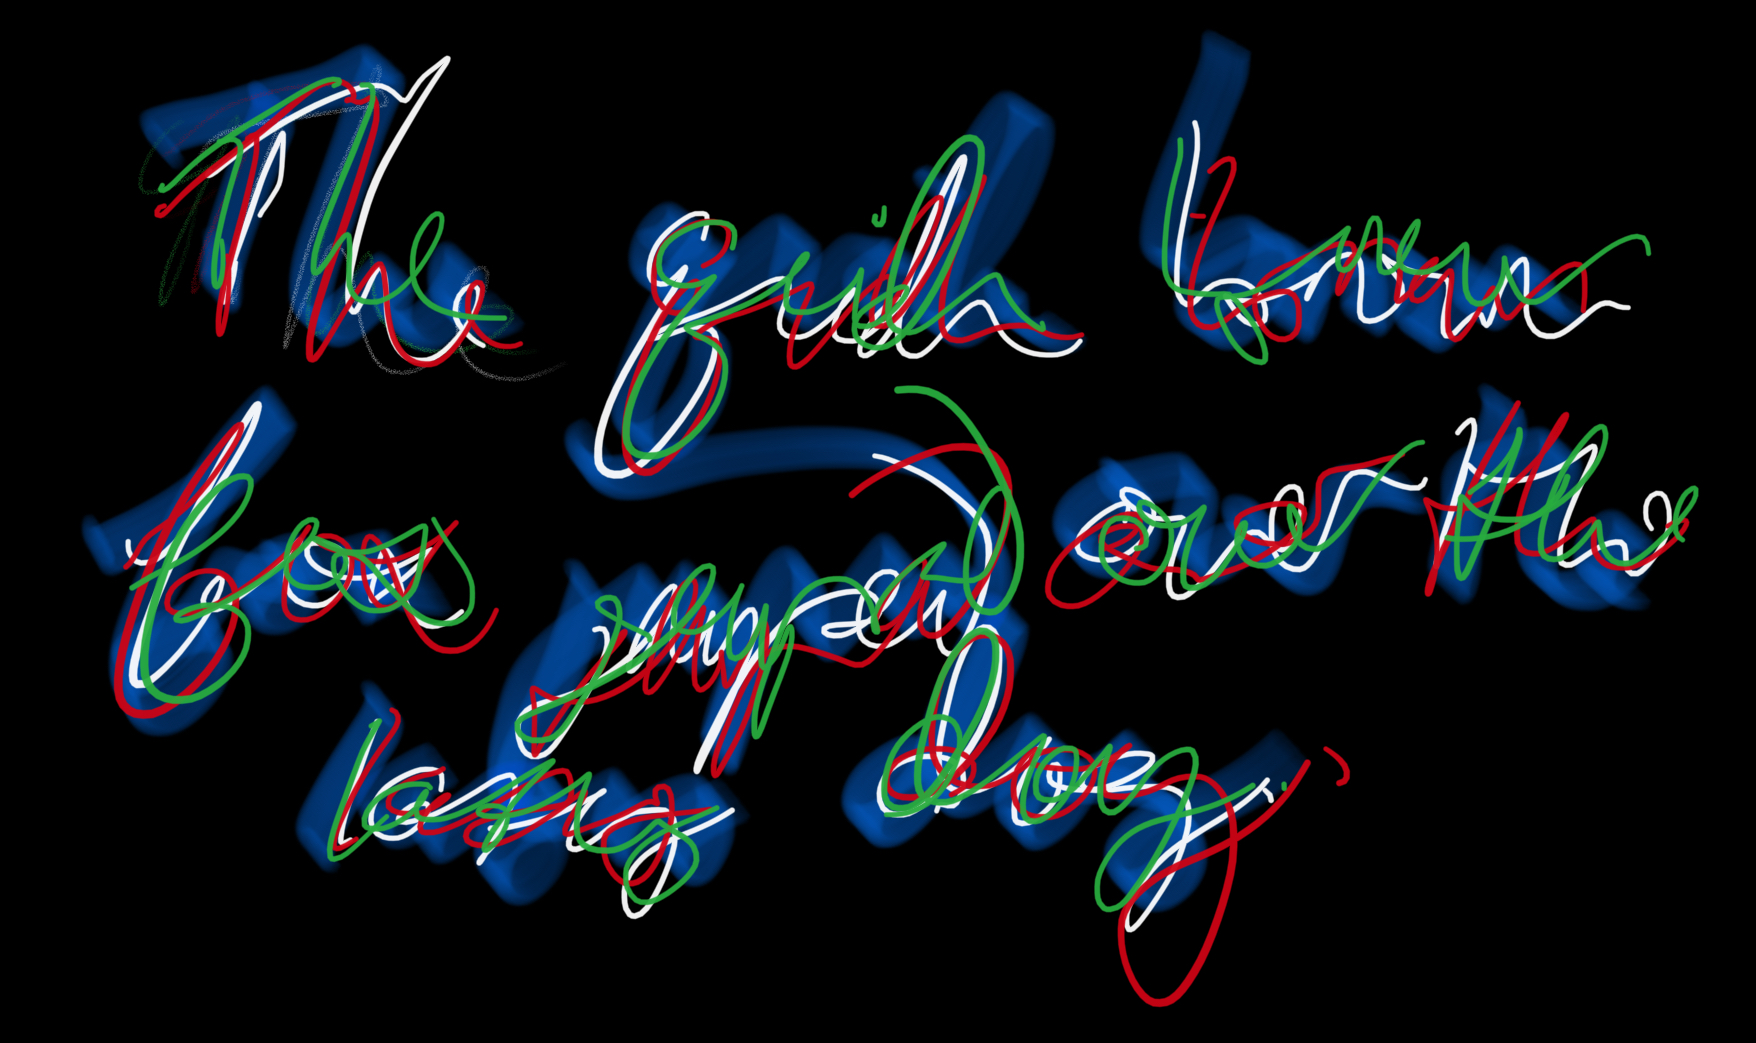 The quick brown
fox jumped over the
lazy dog.